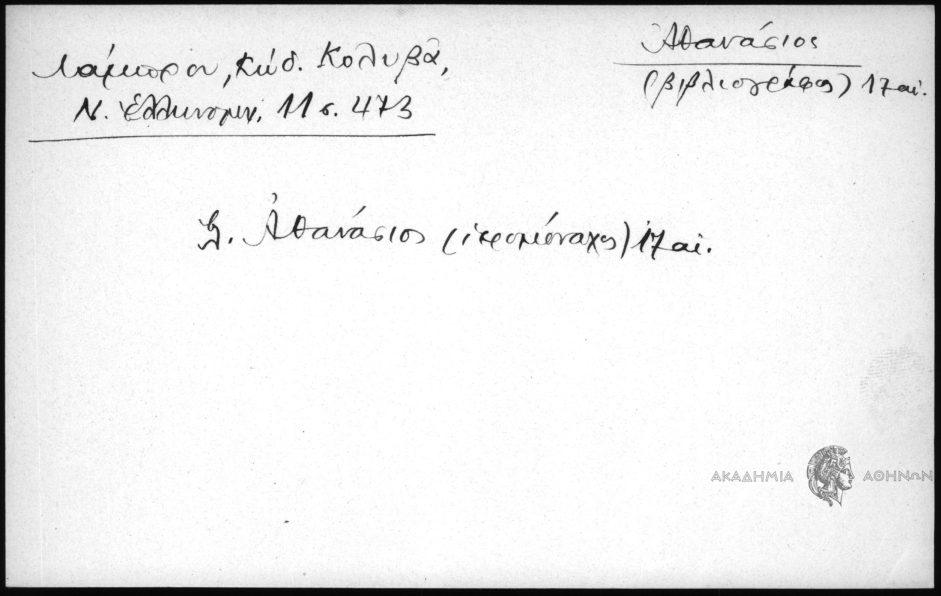 Λάμπρου, Κώδ. Κολυβᾶ,
Ν. Ἑλληνομν. 11 σ. 473
Ἀθανάσιος
(βιβλιογράφος) 17 αἰ.
Ἀθανάσιος (ἱερομόναχος) 17 αἰ.
ΑΚΑΔΗΜΙΑ ΑΘΗΝΩΝ